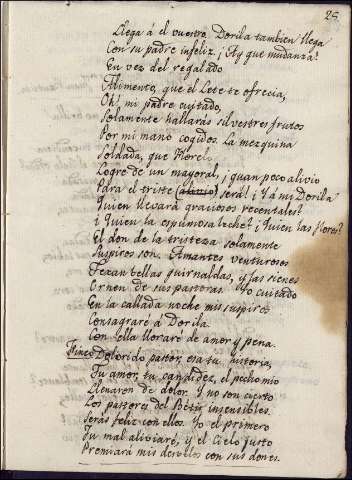 25
Llega á el vuestro. Dorila tambien llega
Con su padre infeliz. ¡Ay que mudanza!
En vez del regalado
Alimento, que el Lete te ofrecia,
Oh! mi padre cuitado,
Solamente hallarás silvestres frutos
Por mi mano cogidos. La mezquina
Soldada, que
Logre de un mayoral, ¡quan poco alivio
Para el triste será! ¡Y á mi Dorila
Quien llevará graciosos recentales?
¿Quien la espumosa leche? ¿Quien las flores?
El don de la tristeza solamente
Suspiros son. Amantes venturosos
Texan bellas guirnaldas, y las sienes
Ornen de sus pastoras. Yo cuitado
En la callada noche mis suspiros
Consagraré á Dorila.
Con ella lloraré de amor y pena.
Dolorido pastor, esa tu historia,
Tu amor, tu candidez, el pecho mio
Llenaron de dolor. Y no son cierto
Los pastores del Betis insensibles.
Serás feliz con ellos. Yo el primero
Tu mal aliviaré, y el Cielo justo
Premiará mis desvelos con sus dones.